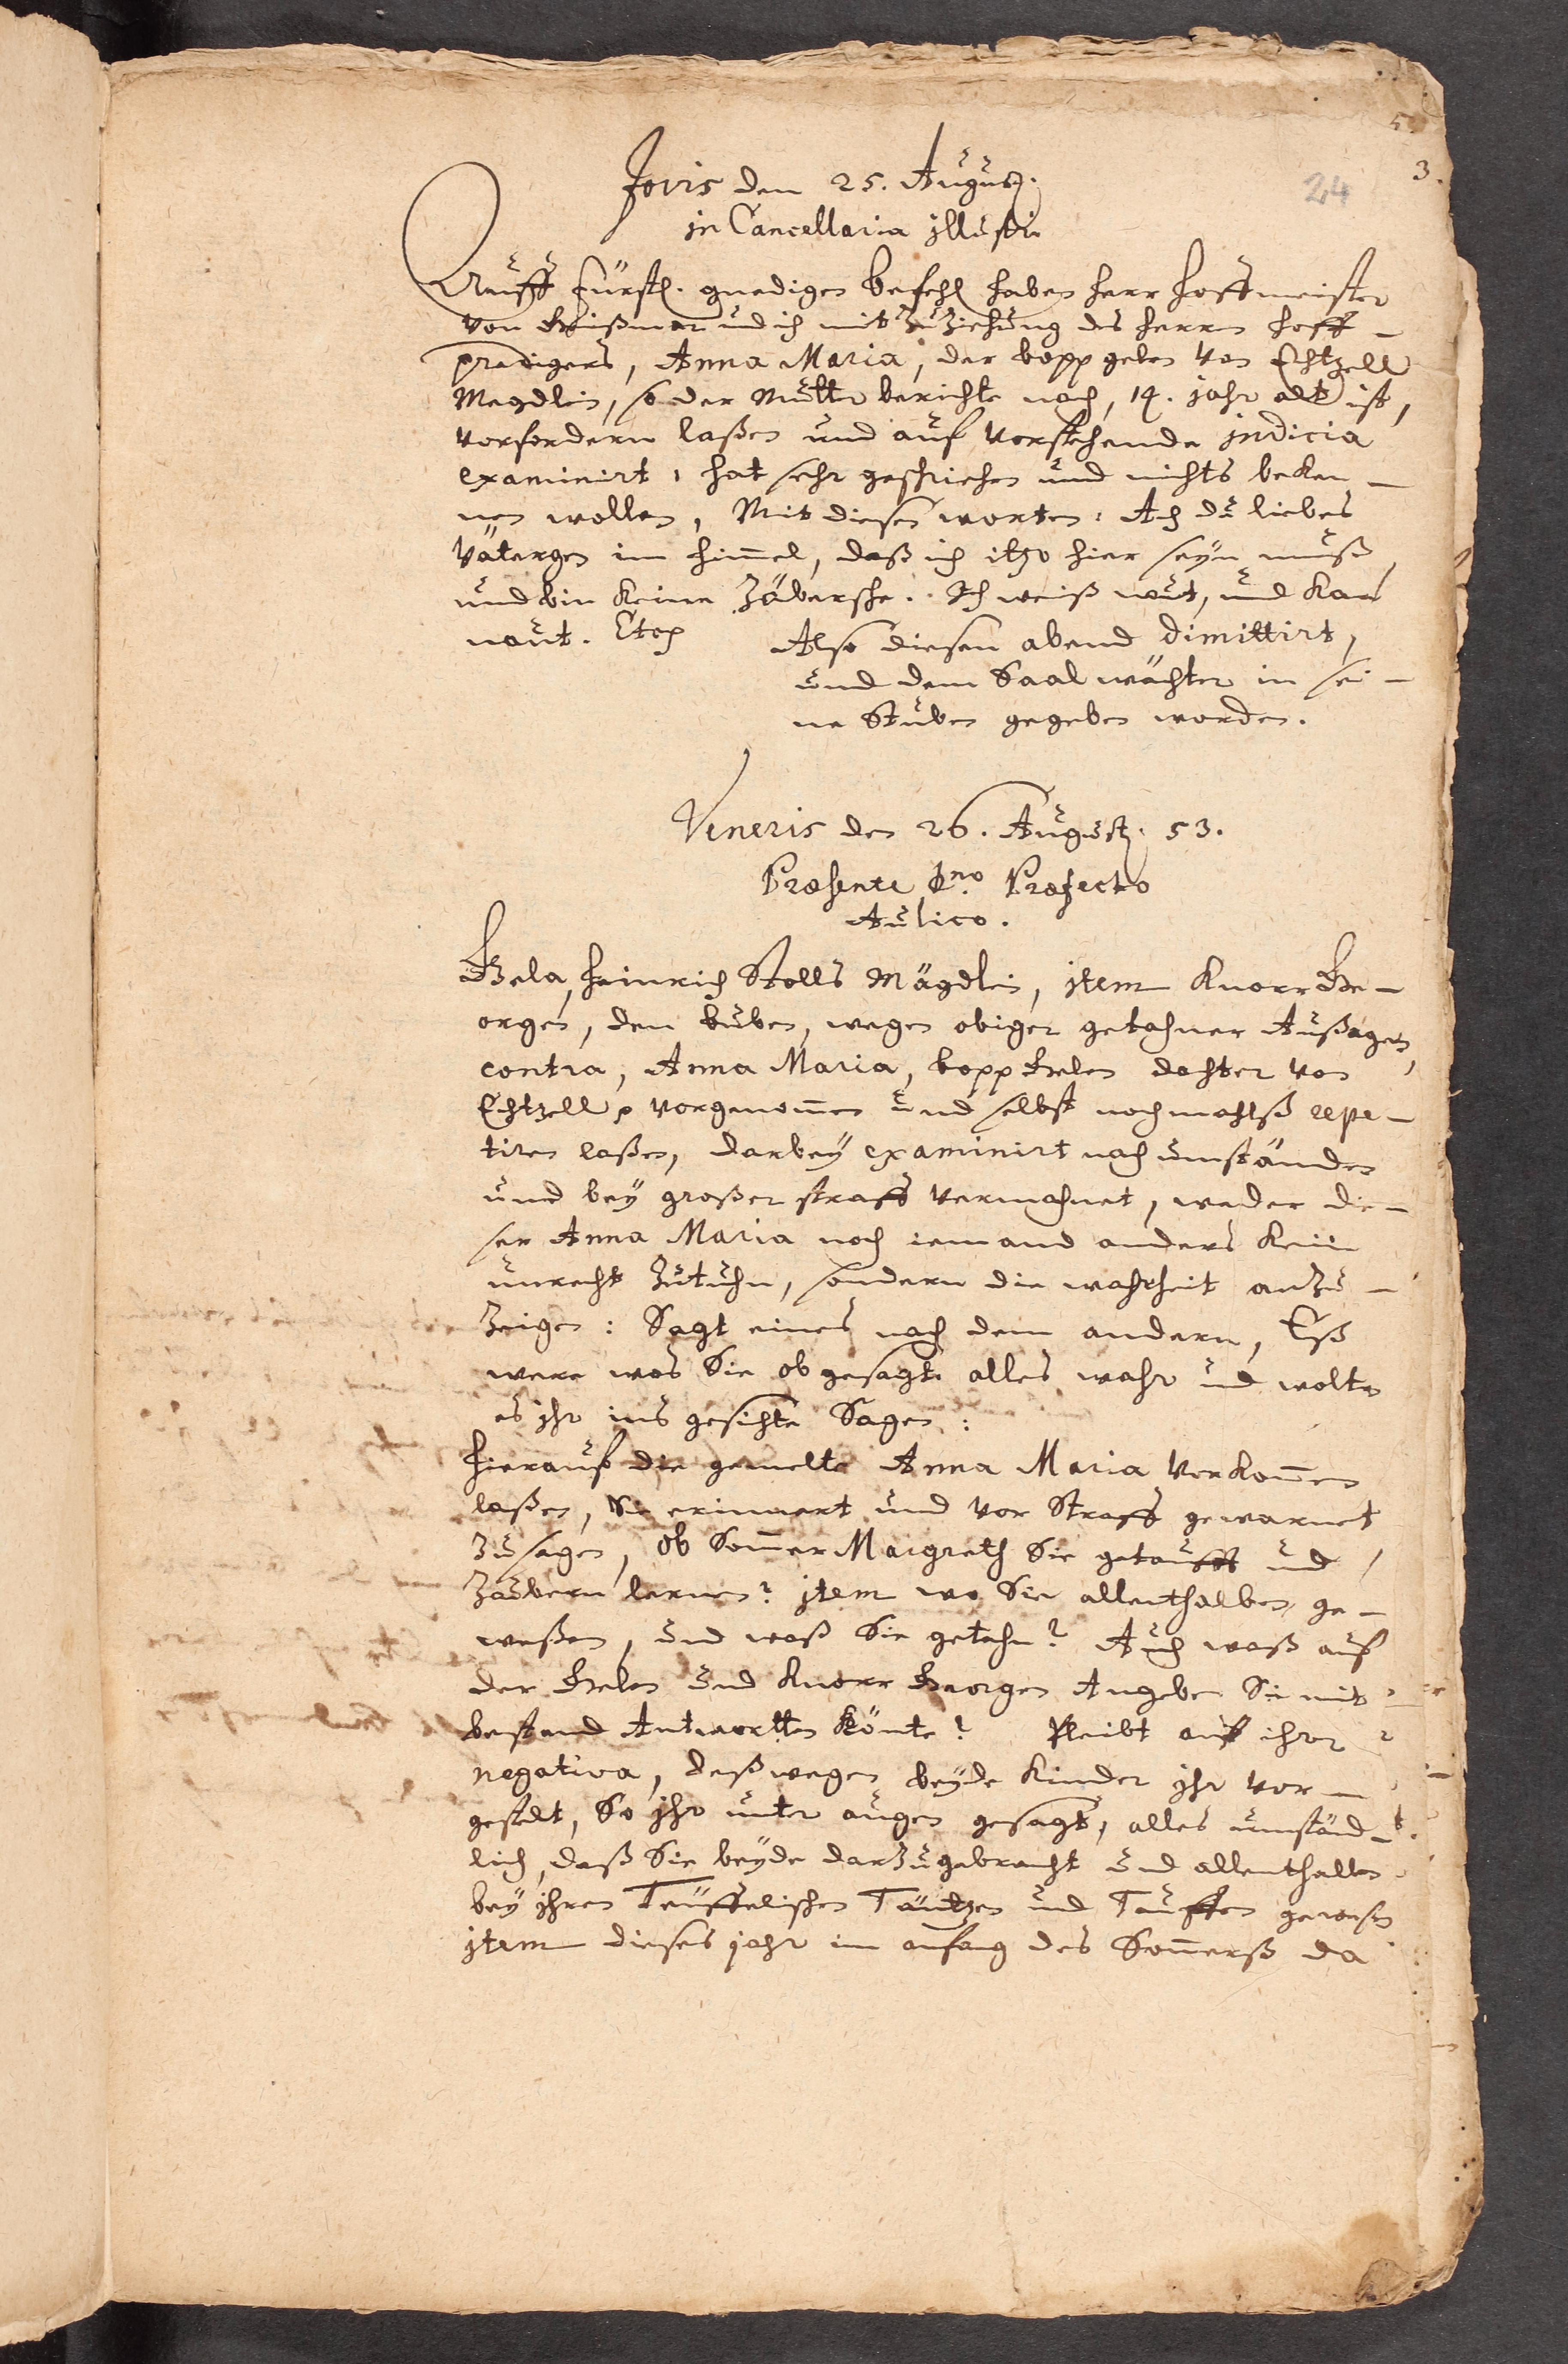 5.
3.
24
Jovis den 25. August.
in Cancellaria illustri
Auff Fürstl. gnedigen Befehl haben Herr Hoffmeister
von und ich mit Zuziehung des Herrn Hoff-
predigers, Anna Maria, der Bopp Gelen von Echtzell
Megdlein, so der Mutter berichte nach, 14. jahr alt ist,
vorfordern laßen und auf vorstehende indicia
examinirt, hat sehr geschriehen und nichts beken-
nen wollen, Mit diesen worten: Ach du liebes
Vätergen im himel, daß ich itzo hier seyn muß,
und bin keine Zäubersche. Ich weiß naut, und kan
naut. Etc
Also diesen abend dimittirt,
und dem Saal wächter in sei-
ne Stuben gegeben worden.
Veneris den 26. August. 53.
Præsente Dno Præfecto
Aulico.
Gela, Heinrich Stolls Mägdlein, item Knorr Ge-
orgen, den buben, wegen obiger getahner Außagen,
contra, Anna Maria, Bopp Gelen dochter von
Echtzell vorgenomen und selbst nochmahlß repe-
tiren laßen, darbey examinirt nach umständen
und bey großer straff vermahnet, weder die-
ser Anna Maria noch iemand anders kein
unrecht zutuhn, sondern die wahrheit anzu-
zeigen: Sagt eines nach dem andern, Eß
were was Sie obgesagt alles wahr und wolten
es ihr ins gesichte Sagen:
Hierauf die gemelte Anna Maria vorkomen
laßen, Sie erinnert und vor Straff gewarnet
zusagen, ob Somer Margreth Sie getaufft und
Zaubern lernen? item wo Sie allenthalben ge-
weßen, und waß Sie getahn? Auch waß auf
der Gelen und Knorr Georgen Angeben Sie mit
bestand Antwortten könte? Pleibt auf ihrer
negativa, deßwegen beyde Kinder ihr vor-
gestelt, So ihr unter augen gesagt, alles umständ-
lich, daß Sie beyde darzugebracht und allenthalben
bey ihren Teuffelischen Täntzen und Tauffen gewesen
item dieses jahr im anfang des Somerß da